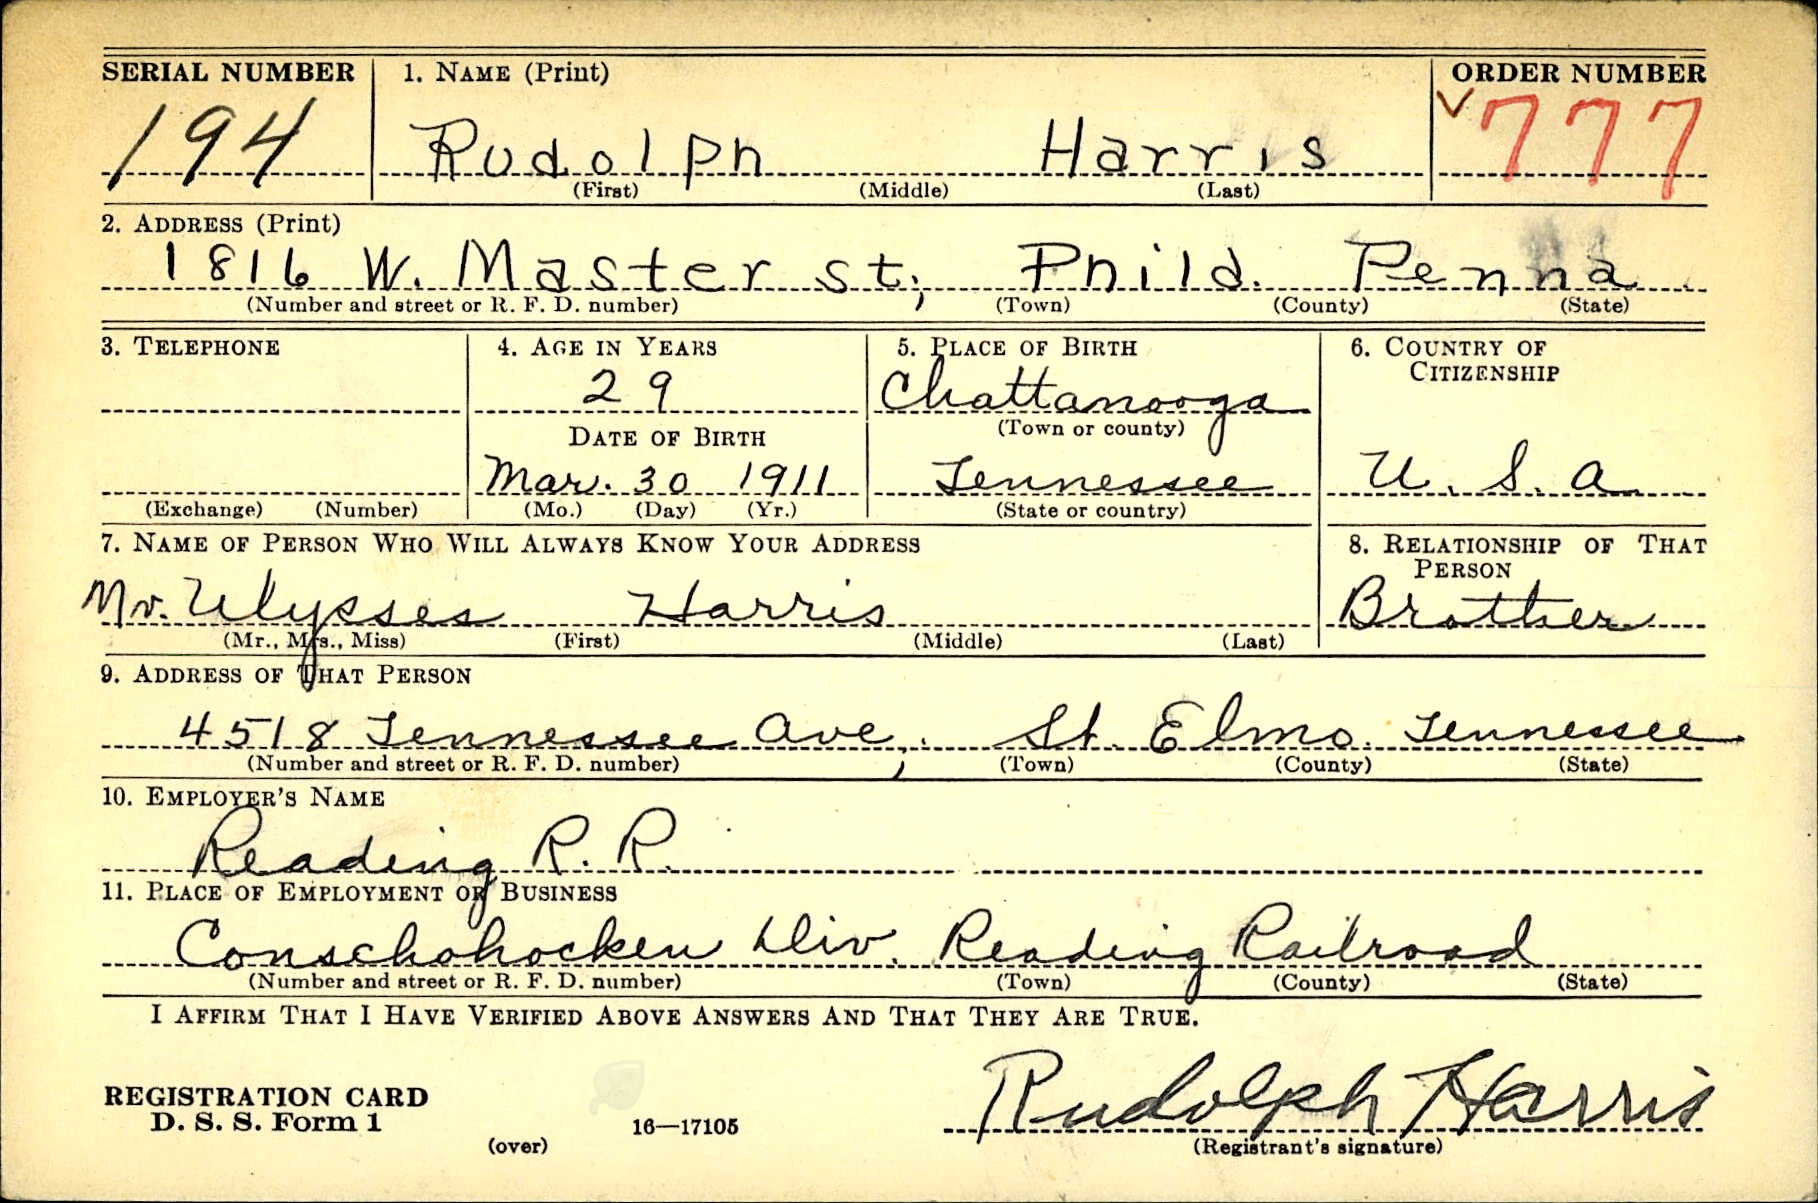 SERIAL NUMBER 1. NAME (Print) ORDER NUMBER
194 Rudolph Harris 777
(First) (Middle) (Last)
2. ADDRESS (Print)
1816 W. Master st; Phila. Penna
(Number and street or R. F. D. number) (Town) (County) (State)
3. TELEPHONE 4. AGE IN YEARS 5. PLACE OF BIRTH 6. COUNTRY OF
CITIZENSHIP
29 Chattanooga
(Town or county)
DATE OF BIRTH
Mar. 30 1911 Tennessee U. S. A
(Exchange) (Number) (Mo.) (Day) (Yr.) (State or country)
7. NAME OF PERSON WHO WILL ALWAYS KNOW YOUR ADDRESS 8. RELATIONSHIP OF THAT
PERSON
Mr. Ulysses Harris Brother
(Mr., Mrs., Miss) (First) (Middle) (Last)
9. ADDRESS OF THAT PERSON
4518 Tennessee Ave; St. Elmo. Tennessee
(Number and street or R. F. D. number) (Town) (County) (State)
10. EMPLOYER'S NAME
Reading R. R.
11. PLACE OF EMPLOYMENT OR BUSINESS
Conschohocken Div. Reading Railroad
(Number and street or R. F. D. number) (Town) (County) (State)
I AFFIRM THAT I HAVE VERIFIED ABOVE ANSWERS AND THAT THEY ARE TRUE.
Rudolph Harris
REGISTRATION CARD
D. S. S. Form 1 16—17105
(over) (Registrant's signature)